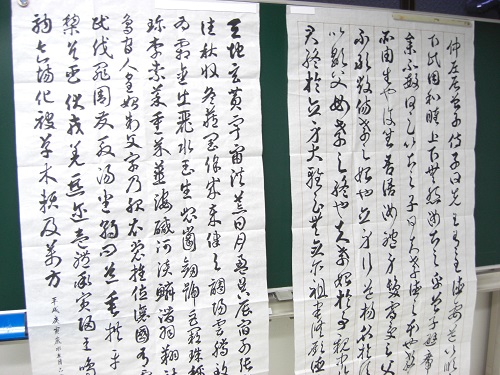 仲尼居曾子侍子曰先王有至德要道以順
下民用和睦上下無怨汝知之乎曾子避席
參不敏何足以知之子曰夫孝德之本也教
所由生也復坐吾語汝身體髮膚受之父
不敢毀傷孝之始也立身行道揚名於後
以顯父母孝之終也夫孝始於事親中於
君終於立身大雅云無念爾祖聿脩厥德
天地玄黄宇宙洪荒日月盈昃辰宿列張
往秋收冬藏閏餘成歲律呂調陽雲騰致
為霜金生麗水玉出崑岡劍號巨闕珠稱
珍李柰菜重芥薑海鹹河淡鱗潛羽翔
鳥官人皇始制文字乃服衣裳推位讓國有
民伐罪周發殷湯坐朝問道垂拱平
黎首臣伏戎羌遐邇壹體率賓歸王鳴
駒食場化被草木賴及萬方
平成庚寅